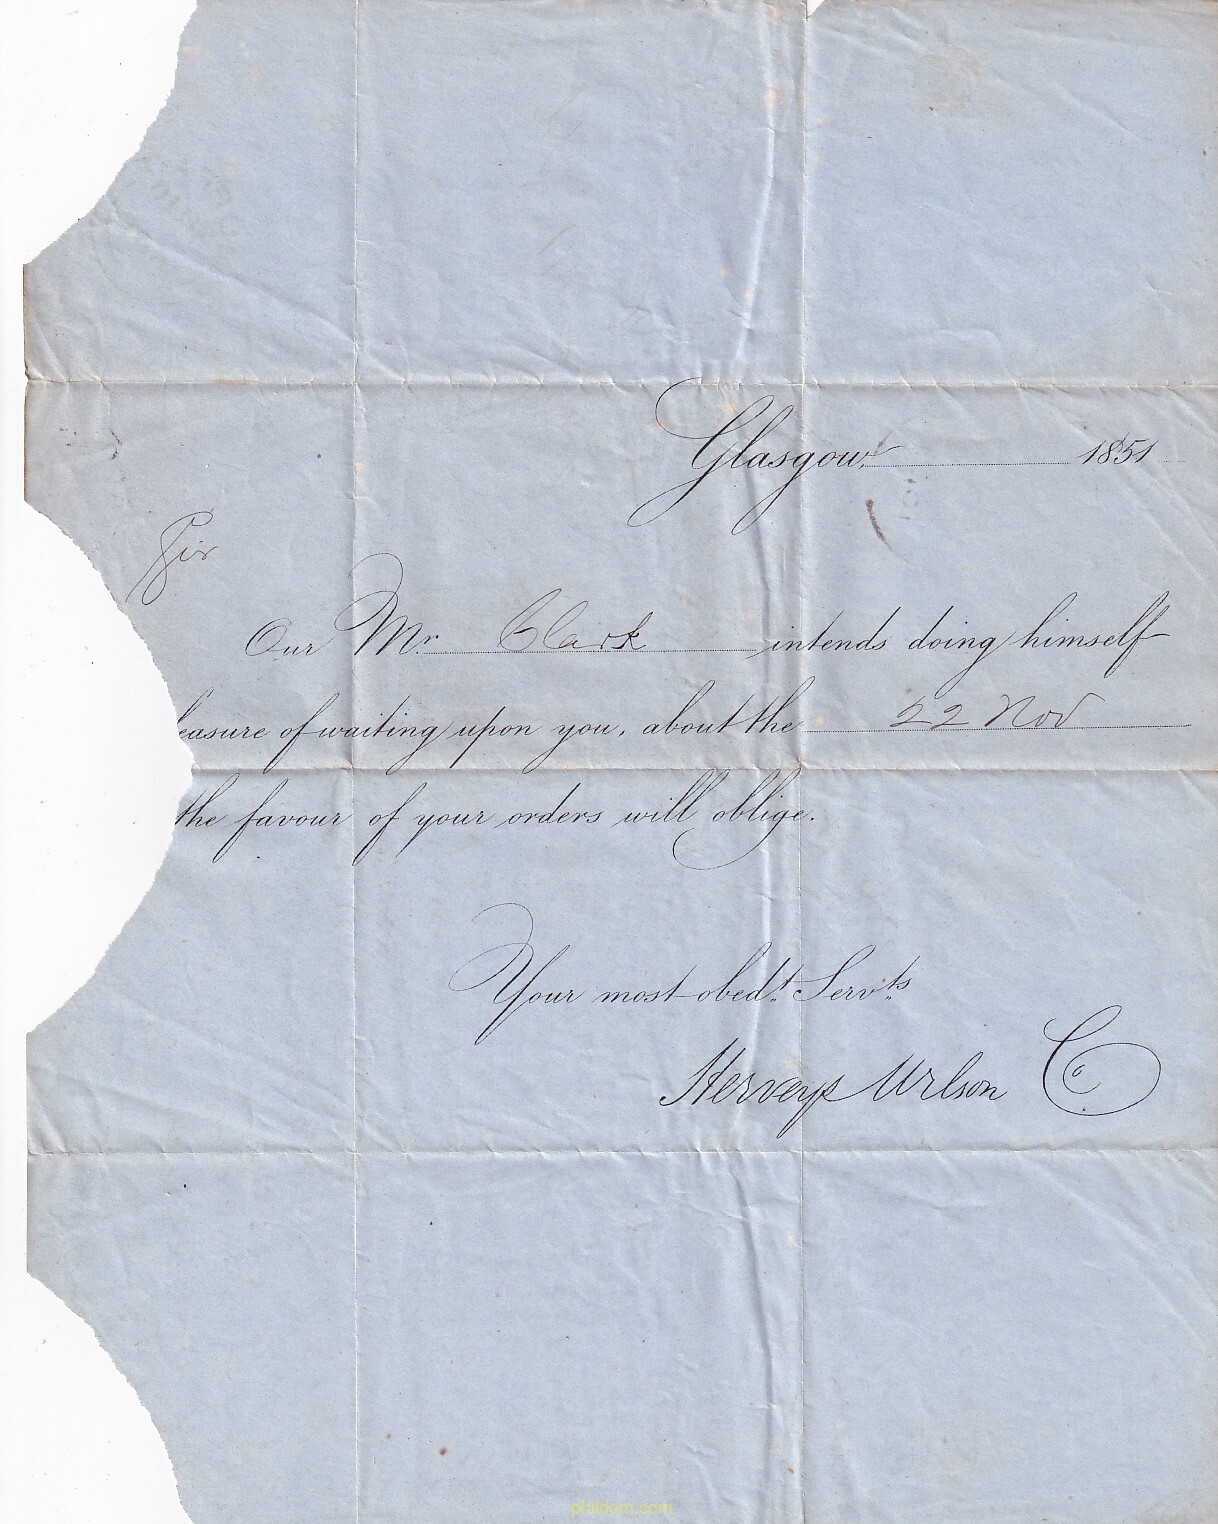 Glasgow, 1851
Sir
Our Mr. Clark intends doing himself
leasure of waiting upon you, about the 22 Nov
the favour of your orders will oblige.
Your most obedt. Servts.
Herveys Wilson Co
phildom.com